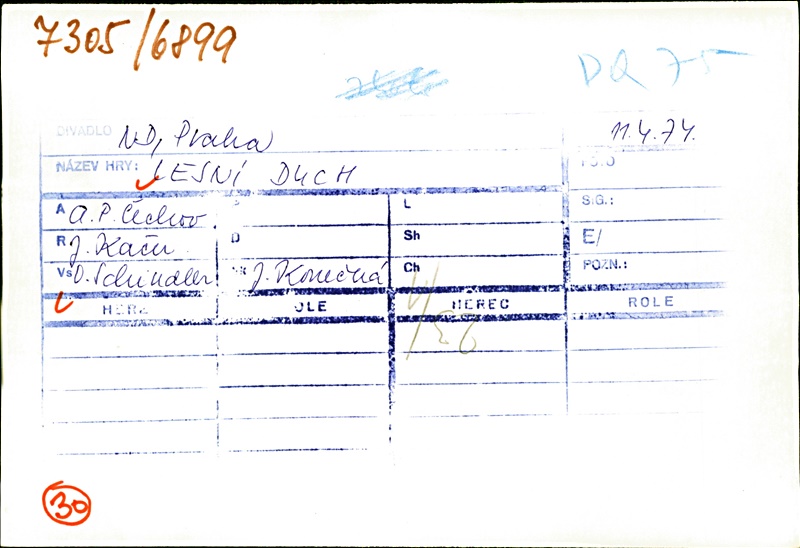 7305/6899
DQ 75
DIVADLO ND, Praha 11.4.74.
NÁZEV HRY: LESNÍ DUCH
A A.P. Čechov L SIG.:
R J. Kačer D Sh E/
Vs O. Schindler J. Konečná Ch POZN.:
ROLE HEREC ROLE
30